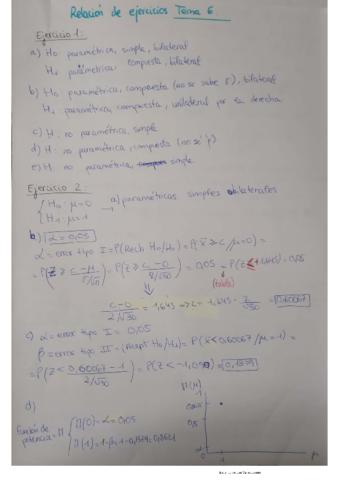 Relación de ejercicios Tema 6
Ejercicio 1:
a) H₀ paramétrica, simple, bilateral
H₁ paramétrica, compuesta, bilateral
b) H₀ paramétrica, compuesta (no se sabe σ), bilateral
H₁ paramétrica, compuesta, unilateral por la derecha
c) H no paramétrica, simple
d) H no paramétrica, compuesta (no sé
e) H no paramétrica, simple
Ejercicio 2:
{ H₀: μ=0 → a) paramétricas simples bilaterales
H₁: μ=1
b) α=0,05
α = error tipo I = P(Rech H₀/H₀) = P(x̄ ≥ c/μ=0) =
= P(Z ≥ c-μ/σ/√n) = P(Z ≥ c-0/2/√30) = 0,05 → P(Z ≤ 1,645) = 0,05
(tabla)
c-0/2/√30 = 1,645 → c = 1,645 · 2/√30 = 0,60067
c) α = error tipo I = 0,05
β = error tipo II = P(Acept H₀/H₁) = P(x̄ < 0,60067/μ=1) =
= P(Z < 0,60067-1/2/√30) = P(Z < -1,09) = 0,1379
d)
Función de potencia = Π { Π(0) = α = 0,05
Π(1) = 1-β = 1-0,1379 = 0,8621
Π(μ)
1
0,5
0
1
μ